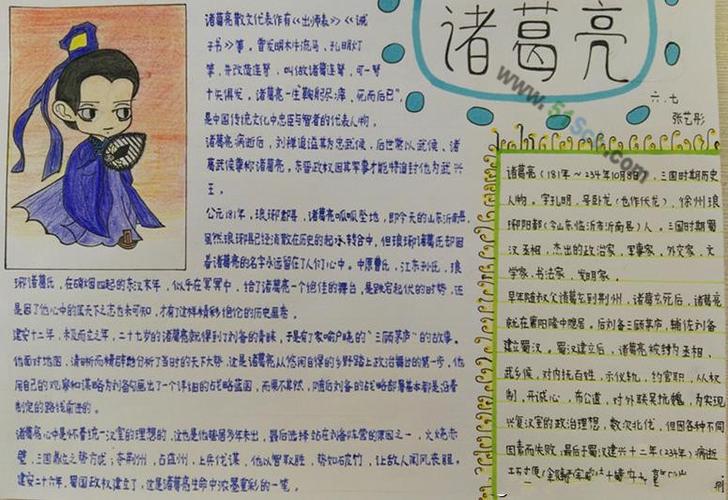 诸葛亮
六.七
张艺彤
诸葛亮散文代表作有《出师表》《诫
子书》等,曾发明木牛流马,孔明灯
等,并改造连弩,叫做诸葛连弩,可一弩
十矢俱发。诸葛亮一生"鞠躬尽瘁,死而后已",
是中国传统文化中忠臣与智者的代表人物。
诸葛亮病逝后,刘禅追谥其为忠武侯,后世常以武侯,诸
葛武侯尊称诸葛亮。东晋政权因其军事才能特追封他为武兴
王。
公元181年,琅琊郡,诸葛亮呱呱坠地,即今天的山东沂南,
虽然琅琊县已经消散在历史的起承转合中,但琅琊诸葛氏却因
着诸葛亮的名字永远留在了人们心中。中原曹氏,江东孙氏,琅
琊诸葛氏,在硝烟四起的东汉末年,似乎在冥冥中,给了诸葛亮一个绝佳的舞台,是跌宕起伏的时势,还
是因了他心中的蓝天下之志也未可知,才有了这样精彩绝伦的历史画卷。
建安十二年,未及而立之年,二十七岁的诸葛亮就得到了刘备的青睐,于是有了家喻户晓的"三顾茅庐"的故事。
他面对地图,清晰而精辟的分析了当时的天下大势,这是诸葛亮从悠闲自得的乡野踏上政治舞台的第一步,他
用自己的观察和谋略为刘备勾画出了一个详细的战略蓝图,而果不其然,随后刘备的战略部署基本都是沿着
制定的路线前进的。
诸葛亮心中是怀着统一汉室的理想的,这也是他隐居多年未出,最后选择站在刘备阵营的原因之一,火烧赤
壁,三国鼎立之势方成,夺荆州,占益州,上兵伐谋,他以智取胜,势如破竹,让敌人闻风丧胆。
建安二十六年,蜀国政权建立了,这是诸葛亮生命中浓墨重彩的一笔。
诸葛亮(181年~234年10月8日),三国时期历史
人物。字孔明,号卧龙(也作伏龙),徐州琅
琊阳都(今山东临沂市沂南县)人,三国时期蜀
汉丞相,杰出的政治家,军事家,外交家,文
学家,书法家,发明家。
早年随叔父诸葛玄到荆州,诸葛玄死后,诸葛亮
就在襄阳隆中隐居,后刘备三顾茅庐,辅佐刘备
建立蜀汉。蜀汉建立后,诸葛亮被封为丞相,
武乡侯,对内抚百姓,示仪轨,约官职,从权
制,开诚心,布公道,对外联吴抗魏,为实现
兴复汉室的政治理想,数次北伐,但因各种不同
因素而失败,最后于蜀汉建兴十二年(234年)病逝